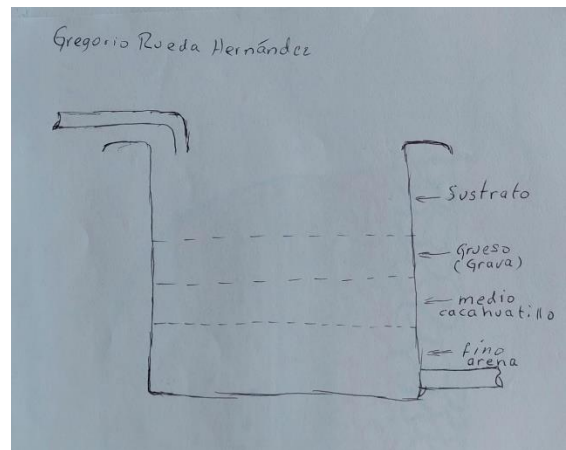 Gregorio Rueda Hernández
Sustrato
grueso
(Grava)
medio
cacahuatillo
fino
arena